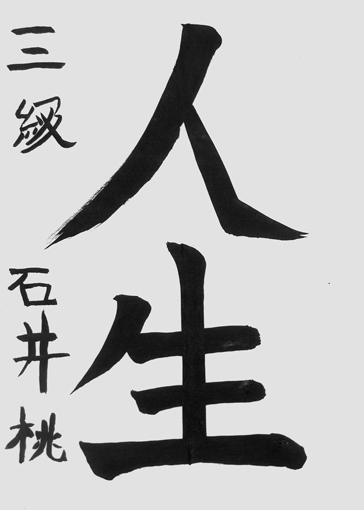 人生
三級
石井桃